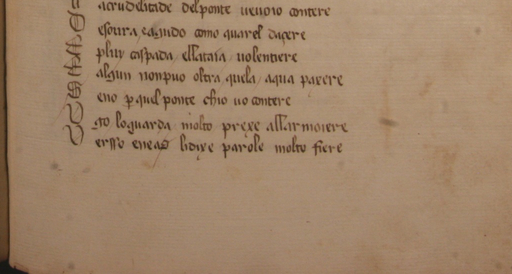 acrudelitade delponte uenoio contere
esoura, agudo como quarel dacere
pluy caspada ellataia uolentiere
algun nonpuo oltra quela aqua parere
eno p quel ponte chio uo contere
go loguarda molto prexe allarmoiere
ersso eneas lidixe parole molto fiere